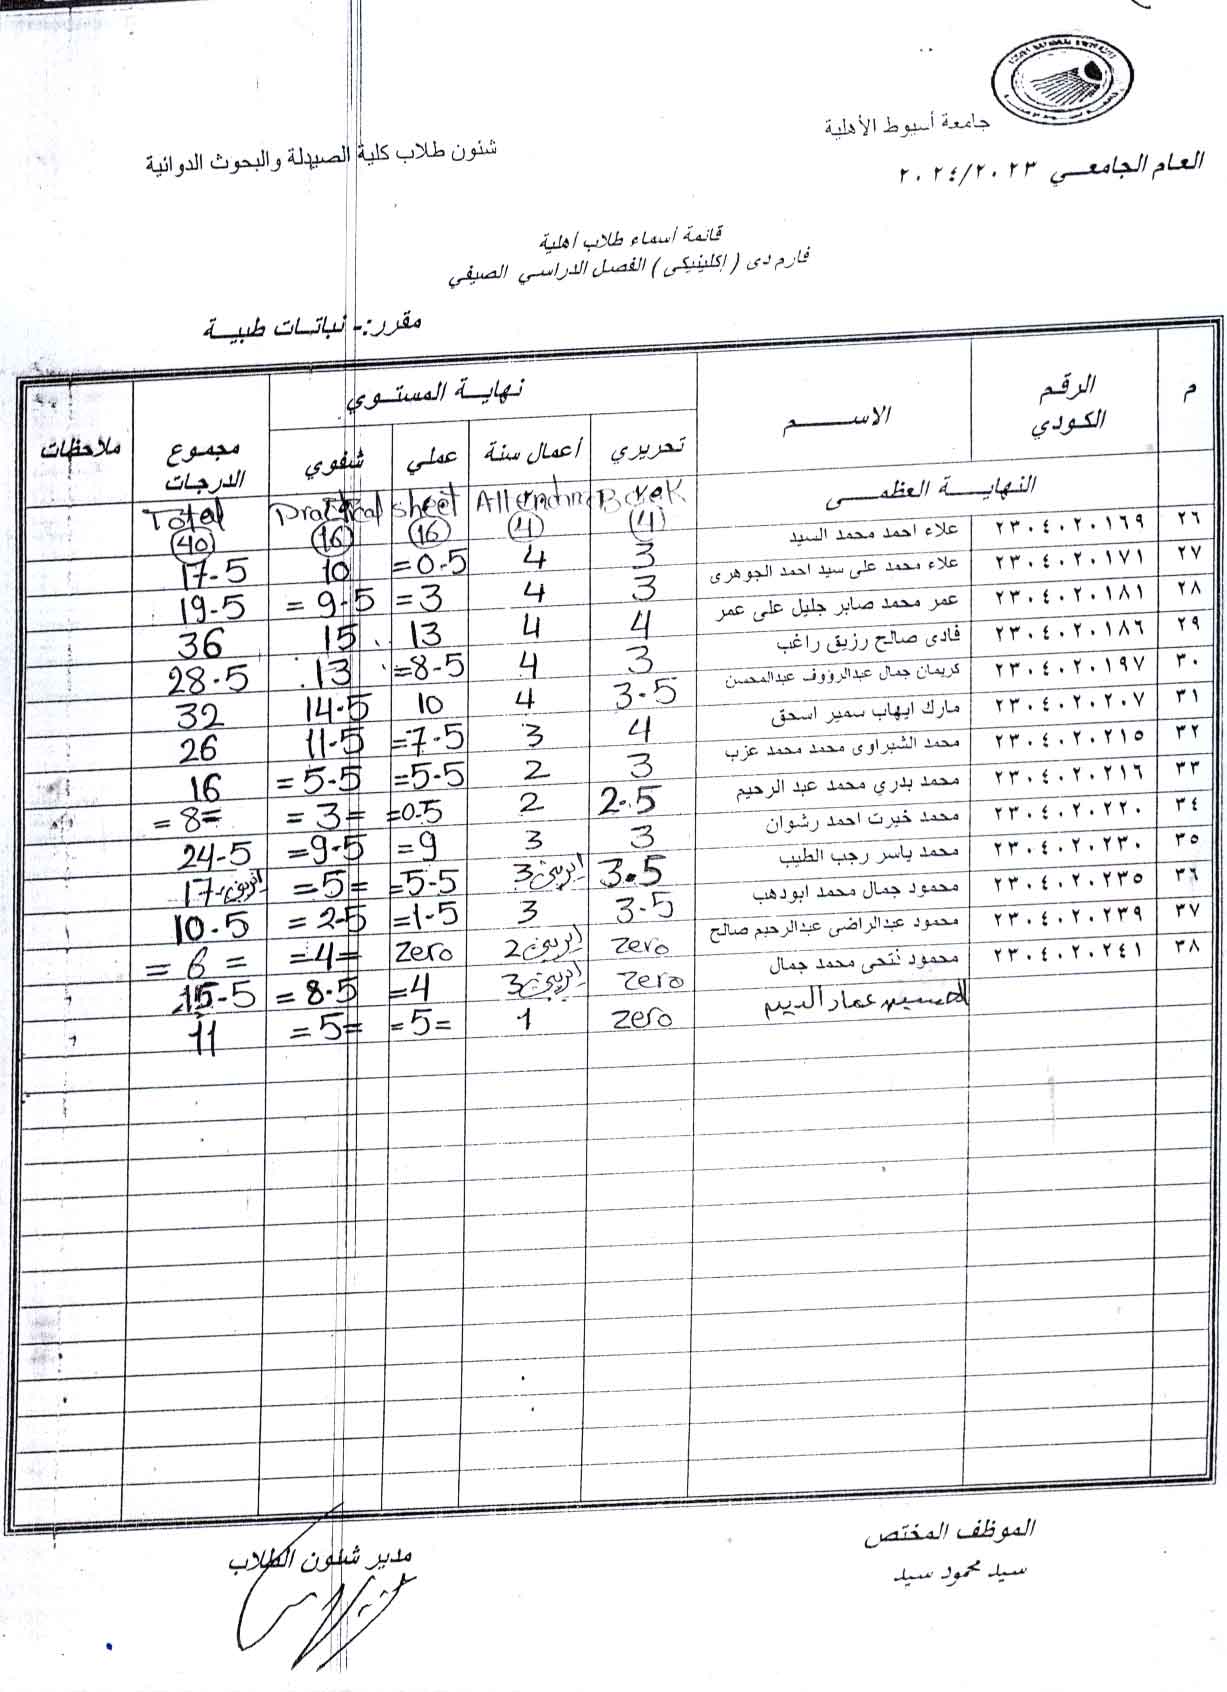 جامعة أسيوط الأهلية
شئون طلاب كلية الصيدلة والبحوث الدوائية
العام الجامعي ٢٠٢٤/٢٠٢٣
قائمة أسماء طلاب أهلية
فارم دى ( إكلينيكى ) الفصل الدراسي الصيفي
مقرر:- نباتات طبية
م الرقم الكودي الاسم نهاية المستوي مجموع الدرجات ملاحظات
تحريري أعمال سنة عملي شفوي
النهاية العظمى
(4) (4) sheet (16) Practical (16) Total (40)
٢٦ ٢٣٠٤٠٢٠١٦٩ علاء احمد محمد السيد 3 4 =0.5 10 17-5
٢٧ ٢٣٠٤٠٢٠١٧١ علاء محمد على سيد احمد الجوهرى 3 4 =3 =9-5 19-5
٢٨ ٢٣٠٤٠٢٠١٨١ عمر محمد صابر جليل على عمر 4 4 13 15 36
٢٩ ٢٣٠٤٠٢٠١٨٦ فادى صالح رزيق راغب 3 4 =8-5 13 28.5
٣٠ ٢٣٠٤٠٢٠١٩٧ كريمان جمال عبدالرؤوف عبدالمحسن 3-5 4 10 14-5 32
٣١ ٢٣٠٤٠٢٠٢٠٧ مارك ايهاب سمير اسحق 4 3 =7-5 11-5 26
٣٢ ٢٣٠٤٠٢٠٢١٥ محمد الشبراوى محمد محمد عزب 3 2 =5-5 =5-5 16
٣٣ ٢٣٠٤٠٢٠٢١٦ محمد بدري محمد عبد الرحيم 2.5 2 =0.5 =3= =8=
٣٤ ٢٣٠٤٠٢٠٢٢٠ محمد خيرت احمد رشوان 3 3 =9 =9-5 24-5
٣٥ ٢٣٠٤٠٢٠٢٣٠ محمد ياسر رجب الطيب 3.5 3 =5-5 =5= 17
٣٦ ٢٣٠٤٠٢٠٢٣٥ محمود جمال محمد ابودهب 3-5 3 =1-5 =2-5 10-5
٣٧ ٢٣٠٤٠٢٠٢٣٩ محمود عبدالراضى عبدالرحيم صالح zero 2 zero =4= =6=
٣٨ ٢٣٠٤٠٢٠٢٤١ محمود فتحى محمد جمال zero 3 =4 =8-5 15-5
عمار zero 1 =5= =5= 11
الموظف المختص
سيد محمود سيد
مدير شئون الطلاب